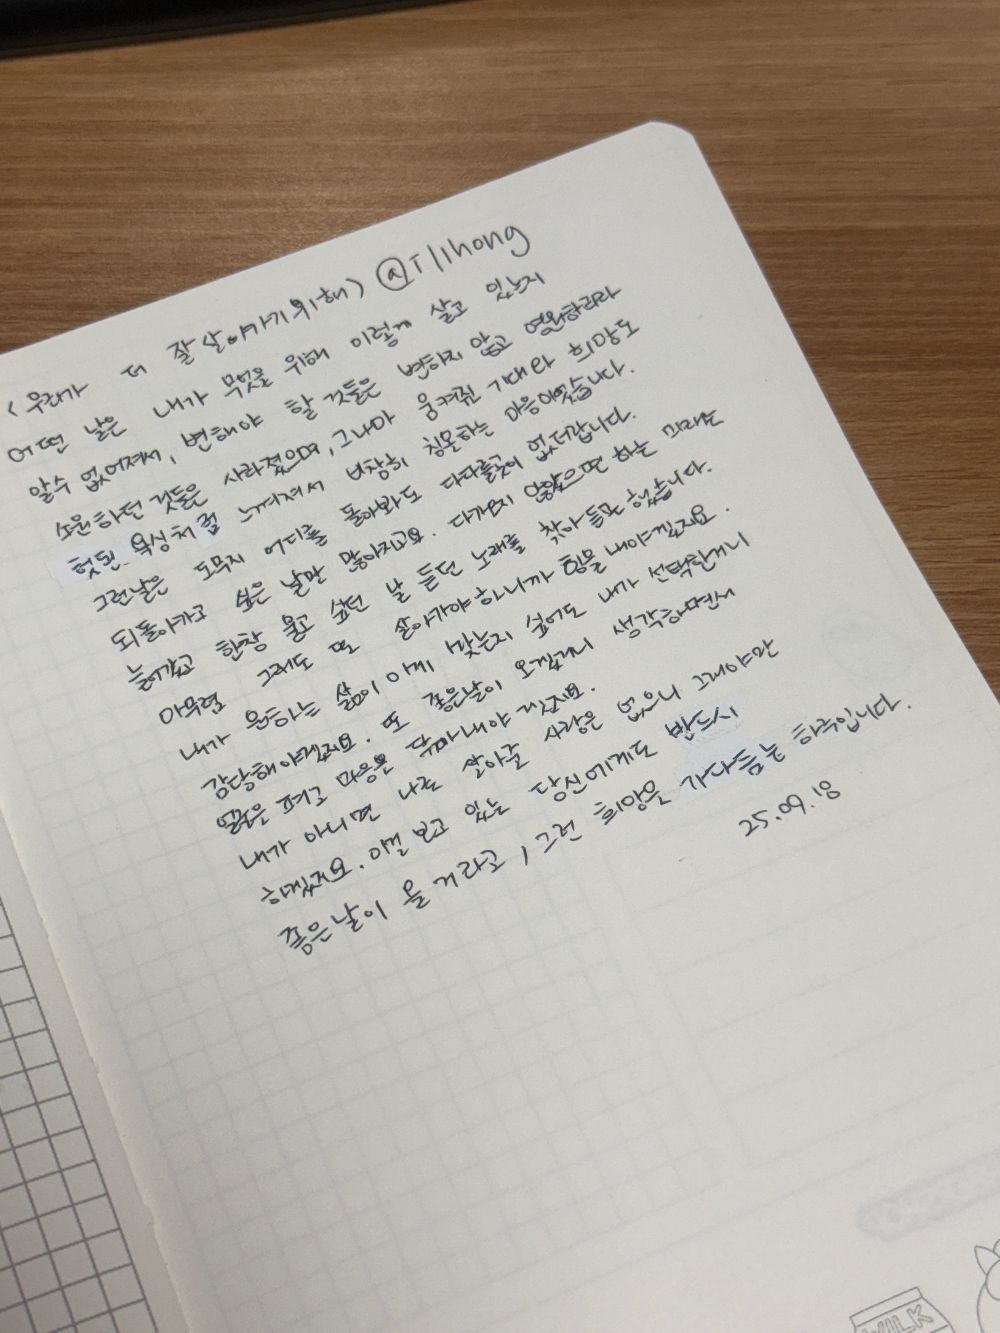 <우리가 더 잘 살아가기 위해> @Illhong
어떤 날은 내가 무엇을 위해 이렇게 살고 있는지
알수 없어져서, 변해야 할 것들은 변하지 않고 영원하리라
소원하던 것들은 사라졌으며, 그나마 움켜쥔 기대와 희망도
헛된 욕심처럼 느껴져서 침몰하는 마음이었습니다.
그런날은 도무지 어디를 돌아봐도 다다를곳이 없더랍니다.
되돌아가고 싶은 날만 많아지고요. 다가오지 않았으면 하는 미래는
늘어갔고 한창 울고 싶던 날 듣던 노래를 찾아 듣고 했습니다.
아무렴 그래도 또 살아가야 하니까 힘을 내야겠지요.
내가 원하는 삶이 이게 맞는지 싶어도 내가 선택한거니
감당해야겠지요. 또 좋은날이 오겠거니 생각하면서
얼굴은 펴고 마음은 지요.
내가 아니면 나로 살아갈 사람은 없으니 그래야만
하겠지요. 이걸 보고 있는 당신에게도 반드시
좋은날이 올 거라고, 그런 희망을 가다듬는 하루입니다.
25.09.18
MILK